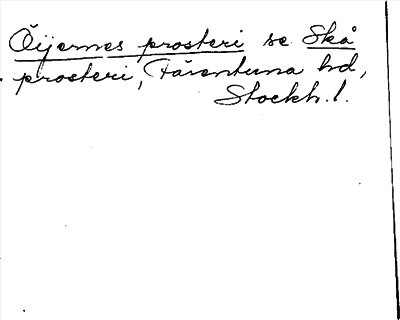 Öijernes prosteri se Skå
prosteri, Färentuna hd,
Stockh. l.